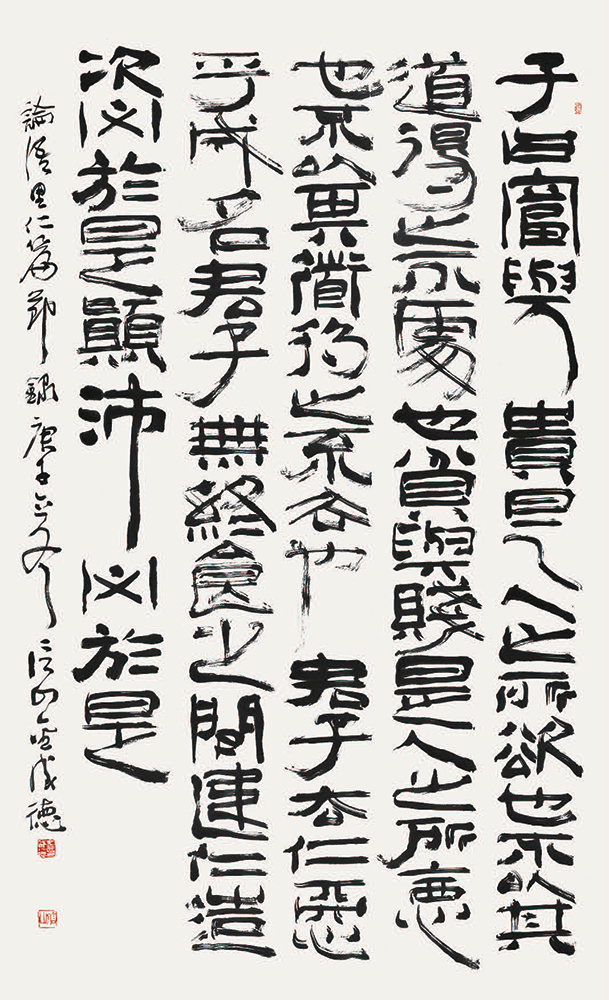 子曰富與貴是人之所欲也不以其
道得之不處也貧與賤是人之所惡
也不以其道得之不去也君子去仁惡
乎成名君子無終食之間違仁造
次必於是顛沛必於是
論語里仁篇節錄庚子山金成德